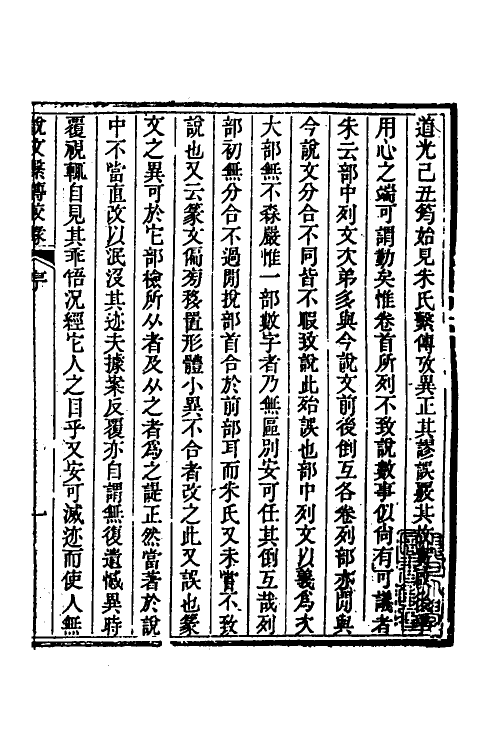 道光己丑筠始見朱氏繫傳攷異正其謬誤覈其
用心之端可謂勤矣惟卷首所列不致說數事似尚有可議者
朱云部中列文次弟多與今說文前後倒互各卷列部亦閒與
今說文分合不同皆不暇致說此殆誤也部中列文以義為次
大部無不森嚴惟一部數字者乃無區別安可任其倒互哉列
部初無分合不過閒挩部首合於前部耳而朱氏又未嘗不致
說也又云篆文偏㫄移置形體小異不合者改之此又誤也篆
文之異可於它部檢所从者及从之者為之諟正然當著於說
中不當直改以泯沒其迹夫據案反覆亦自謂無復遺憾異時
覆視輒自見其乖啎況經它人之目乎又安可滅迹而使人無
說文繫傳校錄 序 一